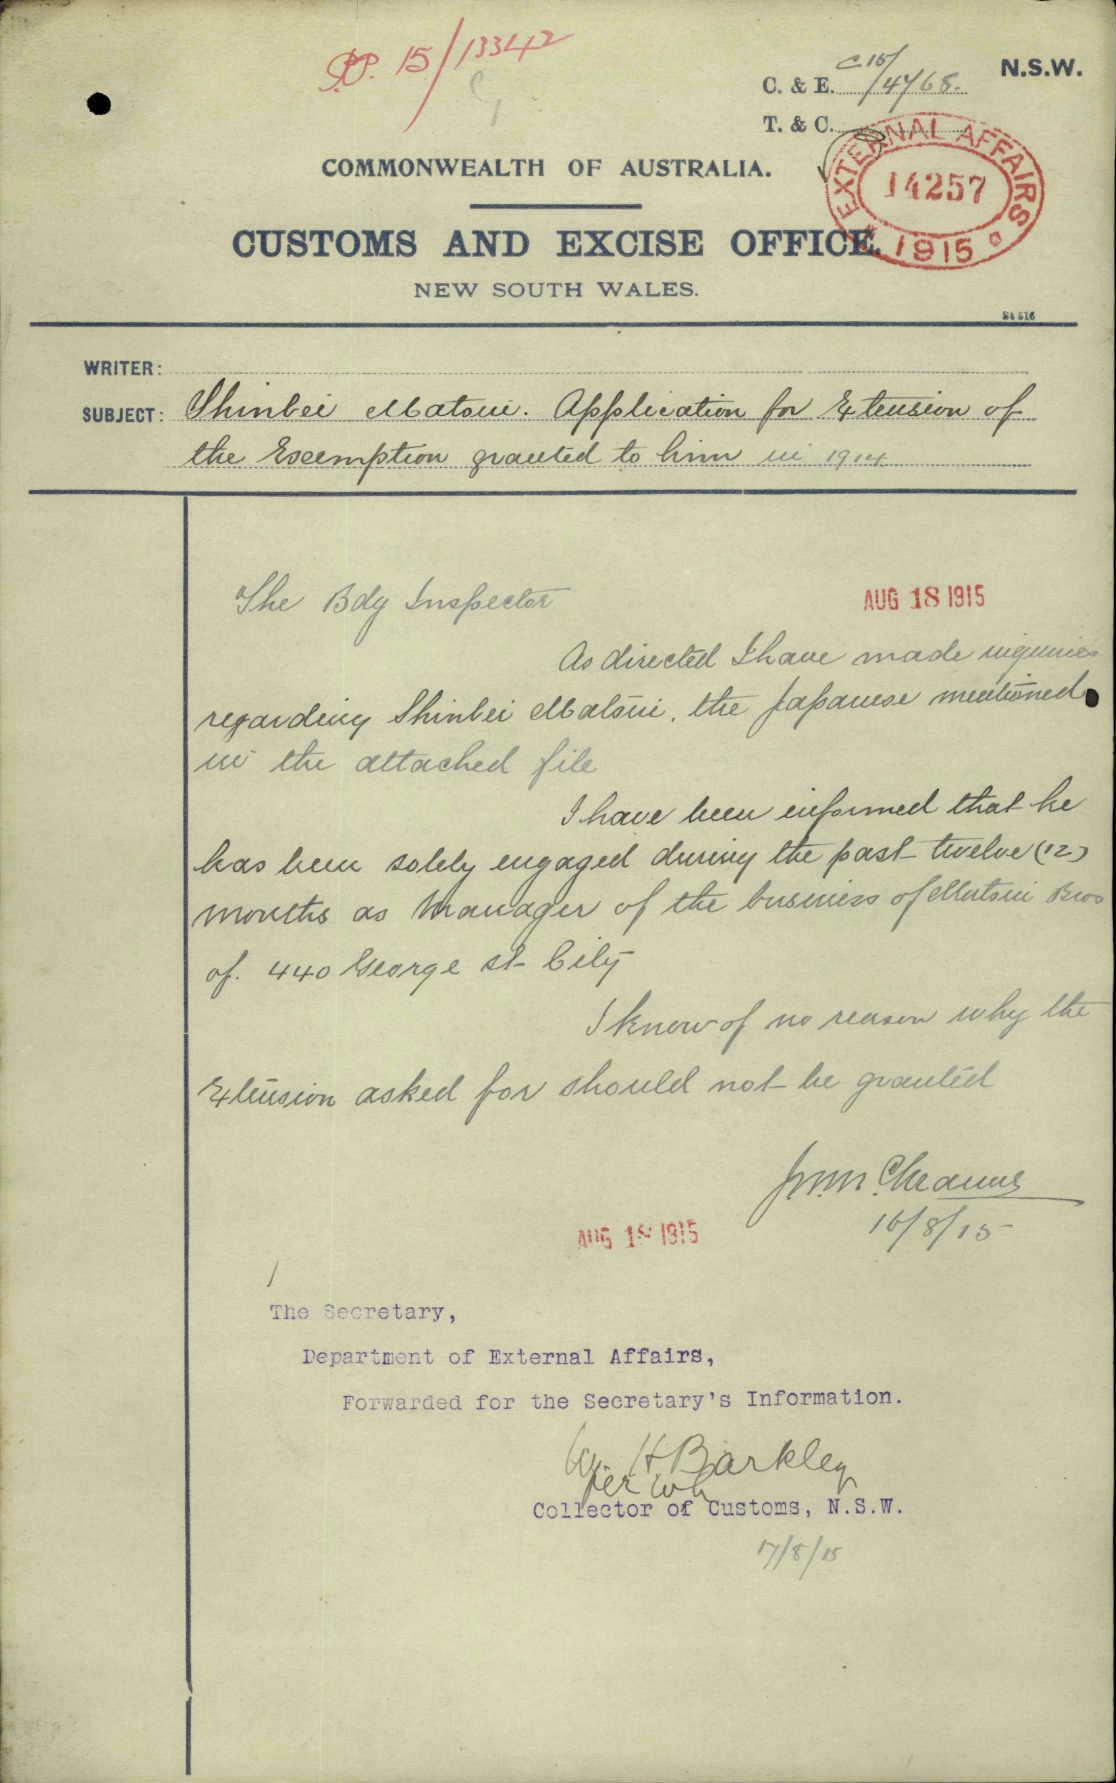 P.P. 15/13342
C. & E. C15/4768.
N.S.W.
T. & C.
EXTERNAL AFFAIRS
14257
1915
COMMONWEALTH OF AUSTRALIA.
CUSTOMS AND EXCISE OFFICE.
NEW SOUTH WALES.
WRITER:
SUBJECT: Shinbei Matsui. Application for Extension of
the Exemption granted to him in 1914
The Bdg Inspector
AUG 18 1915
As directed I have made inquiries
regarding Shinbei Matsui, the Japanese mentioned
in the attached file
I have been informed that he
has been solely engaged during the past twelve (12)
months as Manager of the business of Matsui Bros
of. 440 George st City
I know of no reason why the
Extension asked for should not be granted
16/8/15
AUG 18 1915
The Secretary,
Department of External Affairs,
Forwarded for the Secretary's Information.
W. H. Barkley
per
Collector of Customs, N.S.W.
17/8/15